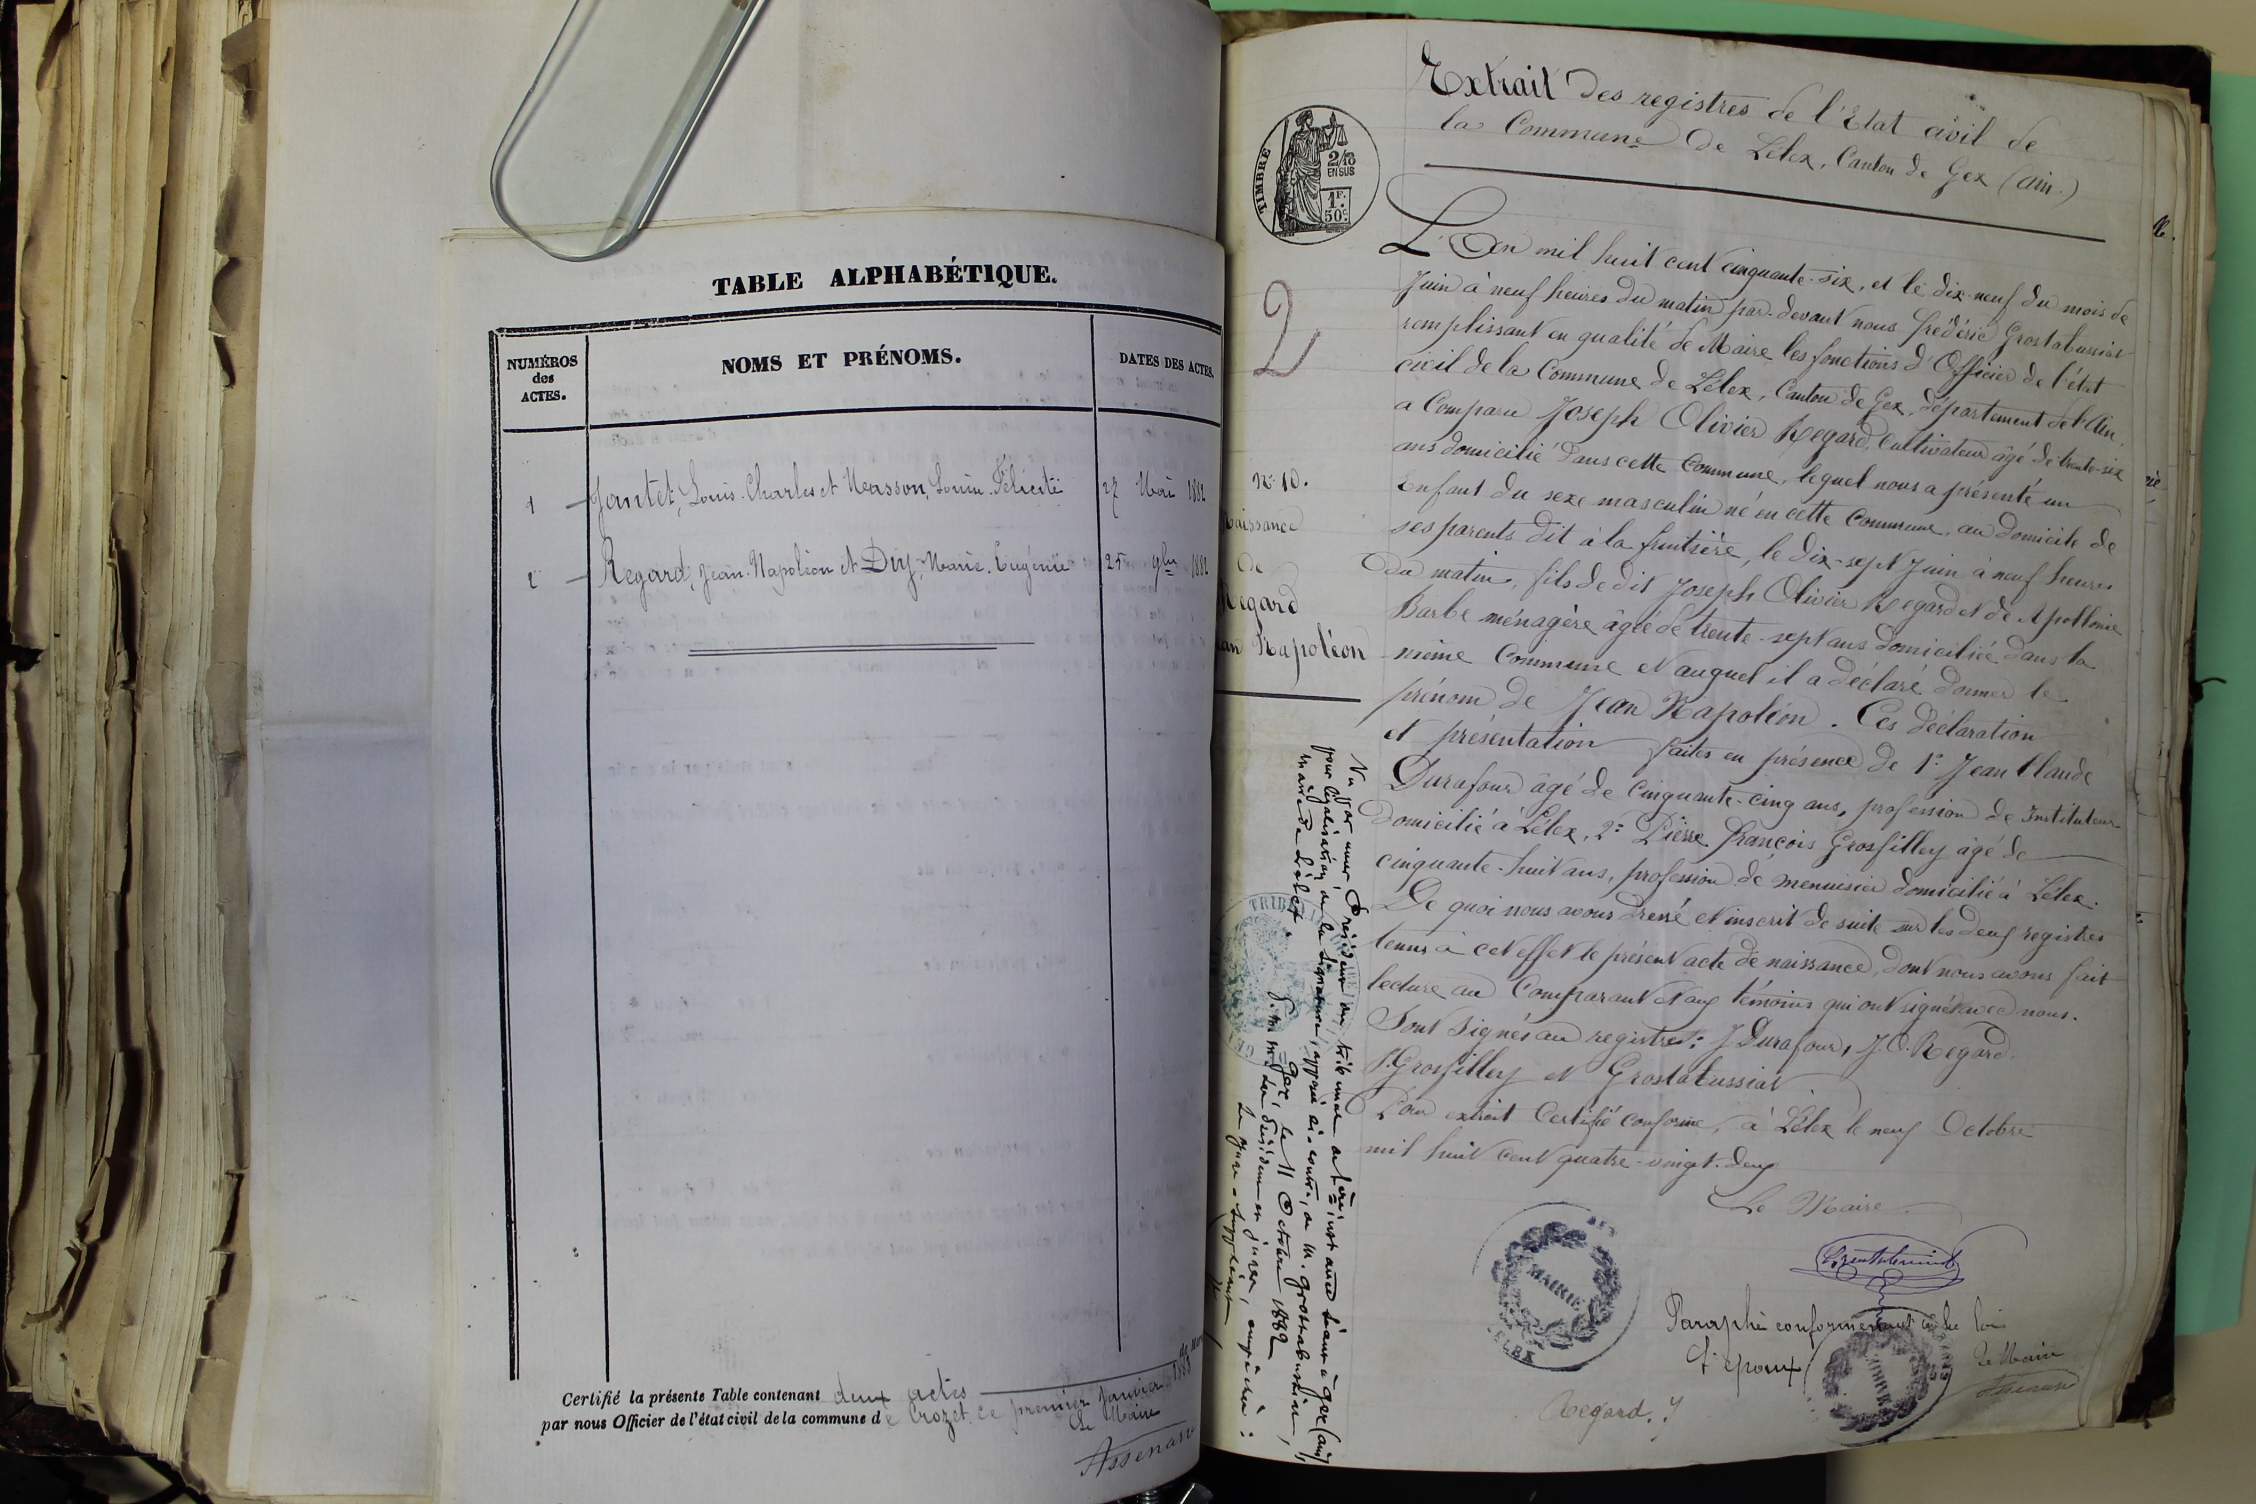 TABLE ALPHABÉTIQUE.
NUMÉROS
des
ACTES.
NOMS ET PRÉNOMS.
DATES DES ACTES.
1 Jantet, Louis Charles et Masson, Louise Félicité 27 Mai 1882
2 Regard, Jean Napoléon et Duy, Marie Eugénie 25 9bre 1882
Certifié la présente Table contenant deux actes
par nous Officier de l'état civil de la commune de Crozet, ce premier Janvier 1883
Le Maire
Assenat
Extrait des registres de l'Etat civil de
la Commune de Lélex, Canton de Gex (Ain.)
TIMBRE
2/10
EN SUS
1F.
50c.
2
L'An mil huit cent cinquante-six, et le dix-neuf du mois de
Juin à neuf heures du matin par-devant nous Frédéric Grostabussiat
remplissant en qualité de Maire les fonctions d'Officier de l'état
civil de la Commune de Lélex, Canton de Gex, département de l'Ain,
a Comparu Joseph Olivier Regard, Cultivateur âgé de trente-six
ans domicilié dans cette Commune, lequel nous a présenté un
Enfant du sexe masculin né en cette Commune, au domicile de
ses parents dit à la fruitière, le dix-sept Juin à neuf heures
du matin, fils de dit Joseph Olivier Regard et de Apollonie
Barbe ménagère âgée de trente-sept ans domiciliée dans la
même Commune et auquel il a déclaré donner le
prénom de Jean Napoléon. Ces déclaration
et présentation faites en présence de 1° Jean Claude
Durafour âgé de Cinquante-cinq ans, profession de Instituteur
domicilié à Lélex, 2° Pierre François Grosfilley âgé de
cinquante-huit ans, profession de menuisier domicilié à Lélex.
De quoi nous avons dressé et inscrit de suite sur les deux registres
tenus à cet effet le présent acte de naissance, dont nous avons fait
lecture au Comparant et aux témoins qui ont signé avec nous.
Sont signés au registre: J. Durafour, J.O. Regard
P. Grosfilley et Grostabussiat
Pour extrait Certifié conforme, à Lélex le neuf Octobre
mil huit cent quatre-vingt-deux
Le Maire
N° 10.
Naissance
de
Regard
Jean Napoléon
Vu par nous Président du tribunal de 1ère instance séant à Gex (ain)
pour légalisation de la signature, apposée ci-contre, de M. Grostabussiat,
maire de Lélex.
Gex, le 11 Octobre 1882
P. M. le Président en congé, empêché:
Le Juge-Suppléant
MAIRIE
LELEX
Paraphé conformément à la loi
Le Maire
Regard. J